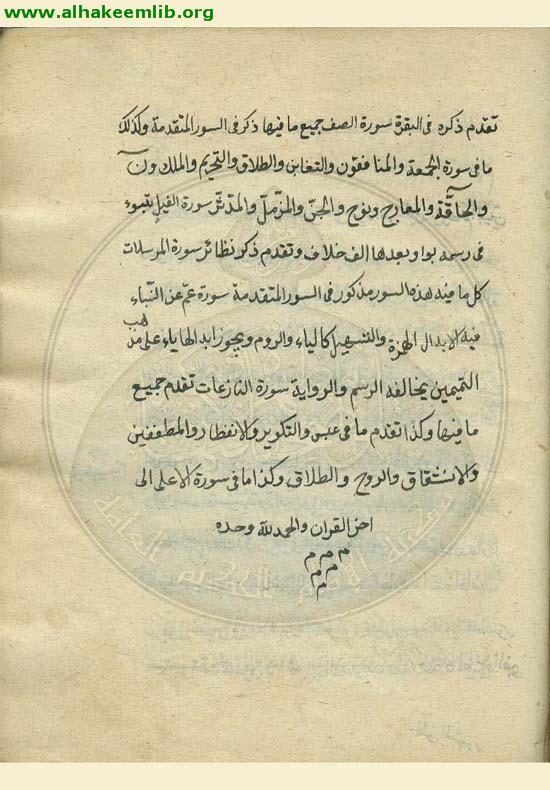 www.alhakeemlib.org
تقدم ذكره فى البقرة سورة الصف جميع ما فيها ذكر فى السور المتقدمة وكذلك
ما فى سورة الجمعة والمنافقون والتغابن والطلاق والتحريم والملك ون
والحاقة والمعارج ونوح والجن والمزمل والمدثر سورة القيل
فى رسمه بواو بعدها الف خلاف وتقدم ذكر نظائر سورة المرسلات
كل ما فيه هذه السور مذكور فى السور المتقدمة سورة عم عن النباء
فيه الابدال الهمزة والتسهيل كالياء والروم ويجوز ابدالها ياء على مذهب
التميمين بمخالفه الرسم والرواية سورة النازعات تقدم جميع
ما فيها وكذا تقدم ما فى عبس والتكوير والانفطار والمطففين
والانشقاق والبروج والطلاق وكذا ما فى سورة الاعلى الى
اخر القران والحمد لله وحده
م م م
م م
م